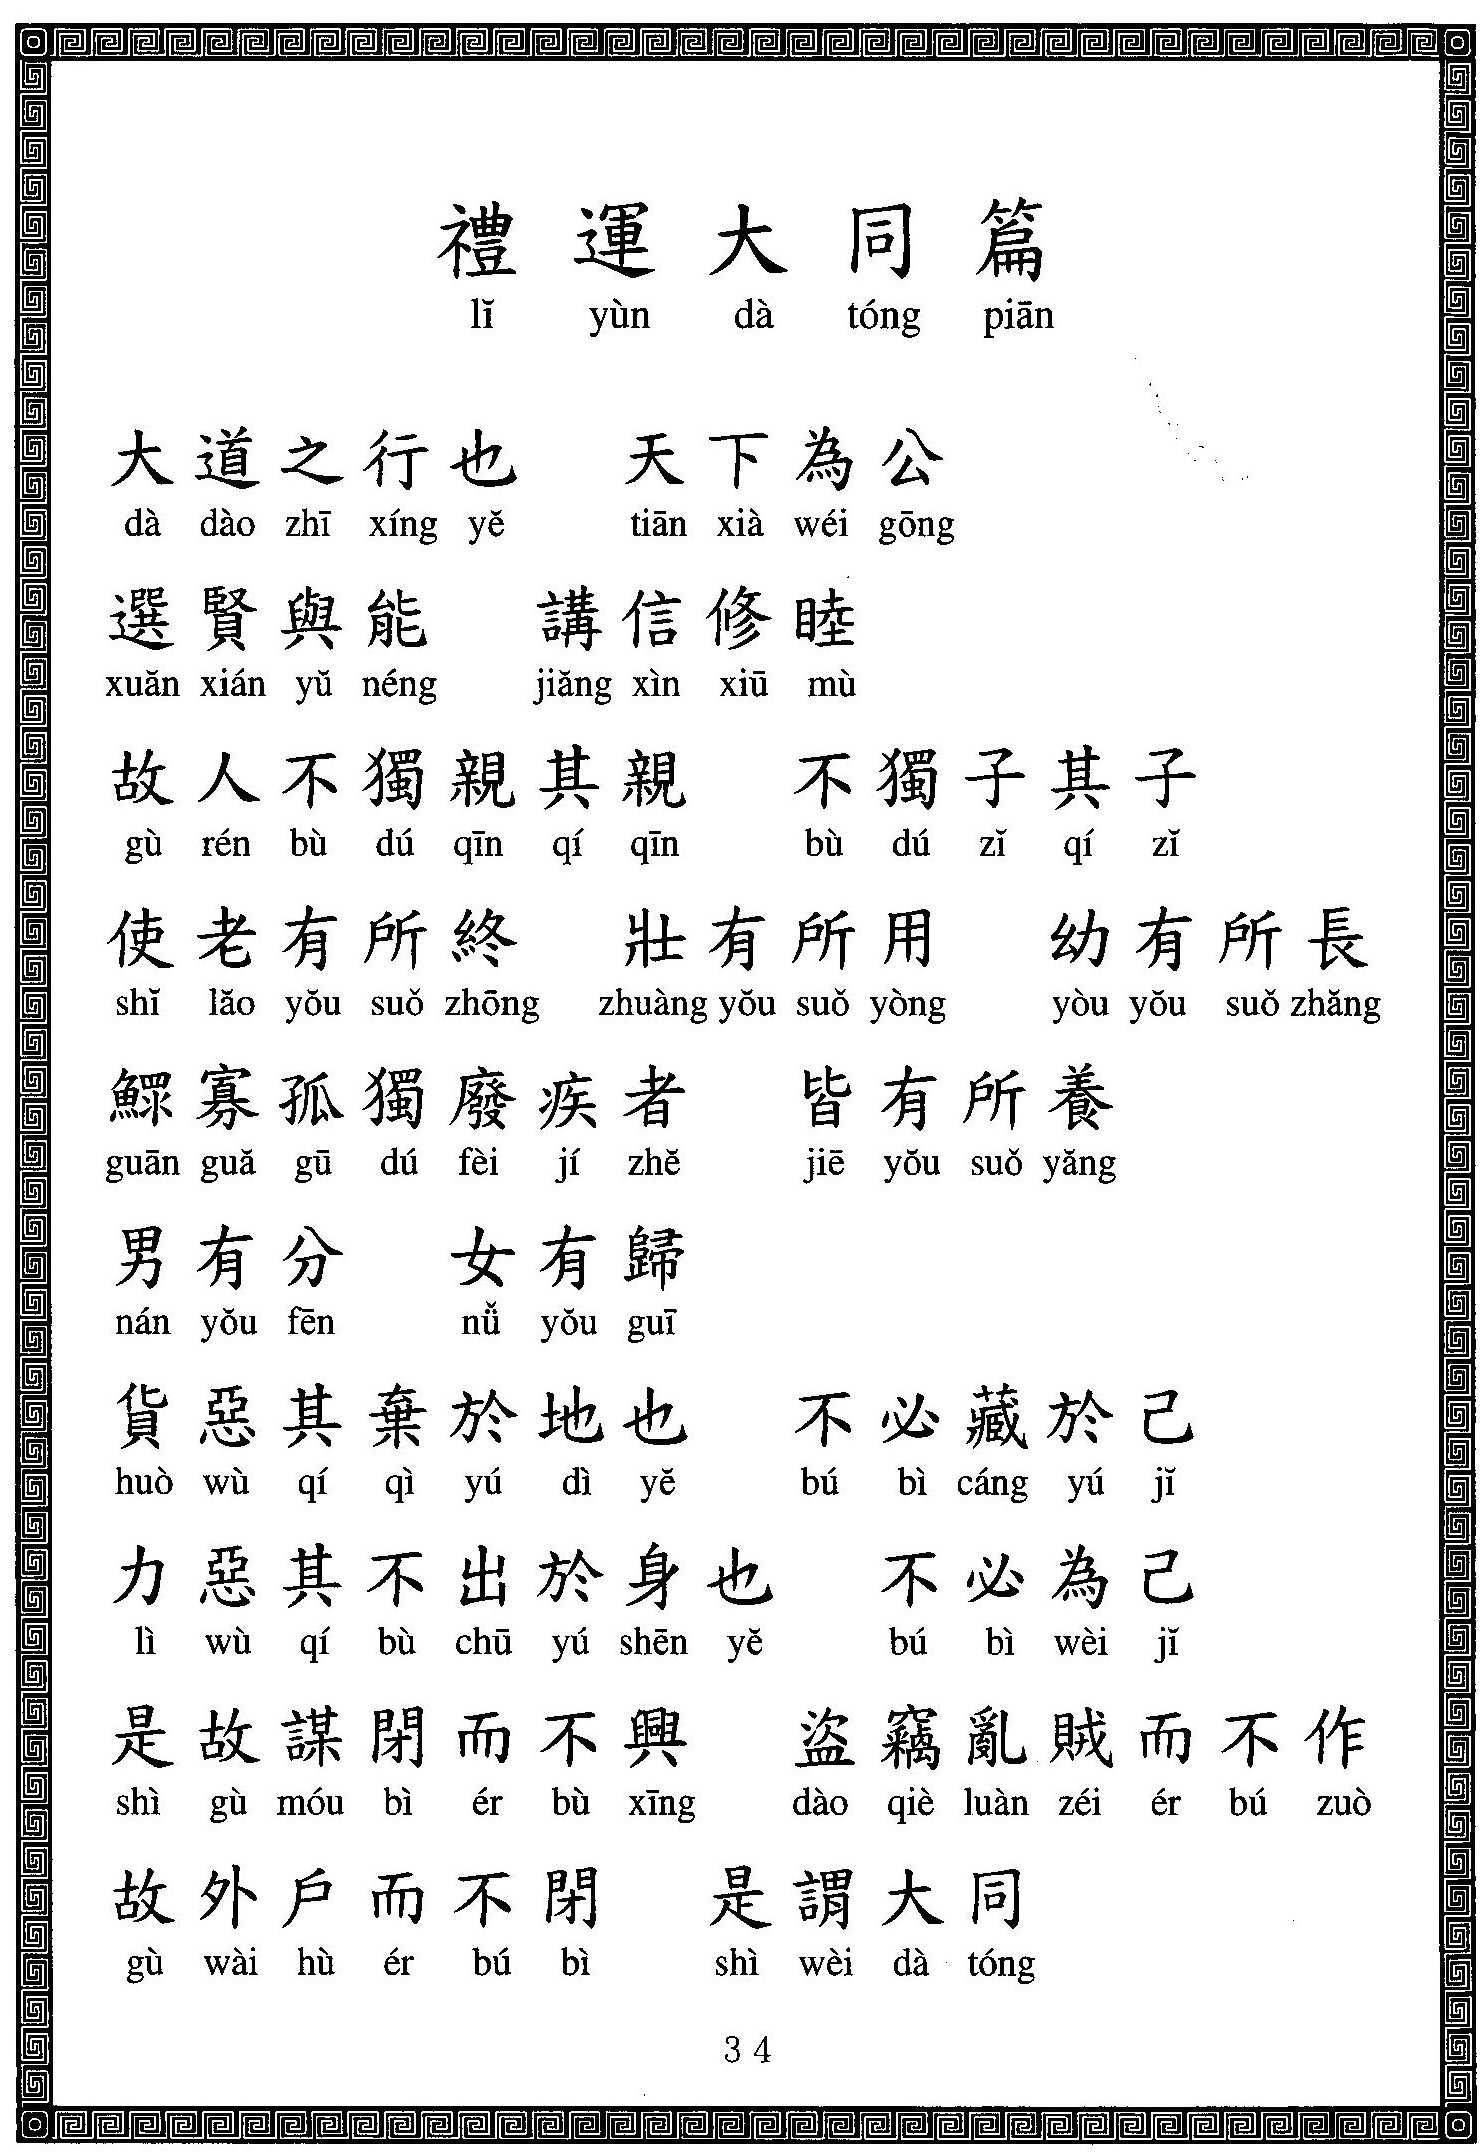 禮運大同篇
lǐ yùn dà tóng piān
大道之行也 天下為公
dà dào zhī xíng yě tiān xià wéi gōng
選賢與能 講信修睦
xuǎn xián yǔ néng jiǎng xìn xiū mù
故人不獨親其親 不獨子其子
gù rén bù dú qīn qí qīn bù dú zǐ qí zǐ
使老有所終 壯有所用 幼有所長
shǐ lǎo yǒu suǒ zhōng zhuàng yǒu suǒ yòng yòu yǒu suǒ zhǎng
鰥寡孤獨廢疾者 皆有所養
guān guǎ gū dú fèi jí zhě jiē yǒu suǒ yǎng
男有分 女有歸
nán yǒu fēn nǚ yǒu guī
貨惡其棄於地也 不必藏於己
huò wù qí qì yú dì yě bú bì cáng yú jǐ
力惡其不出於身也 不必為己
lì wù qí bù chū yú shēn yě bú bì wèi jǐ
是故謀閉而不興 盜竊亂賊而不作
shì gù móu bì ér bù xīng dào qiè luàn zéi ér bú zuò
故外戶而不閉 是謂大同
gù wài hù ér bú bì shì wèi dà tóng
34